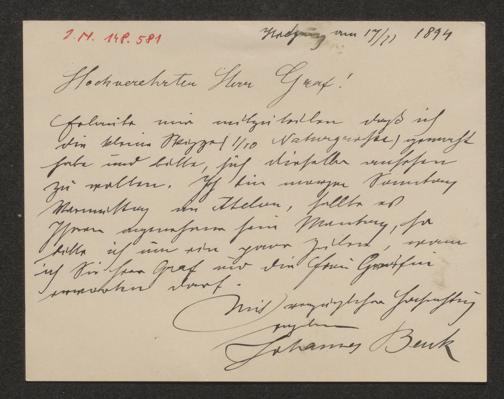 I. N. 148.581
am 17/11 1894
Hochverehrter Herr Graf!
Erlaube mir mitzuteilen daß ich
die kleine Skizze (1/10 Naturgröße) gemacht
habe und bitte, sich dieselbe ansehen
zu wollen. Ich bin morgen Sonntag
Vormittag im Atelier, sollte es
Ihnen angenehmer sein Montag, so
bitte ich um ein paar Zeilen, wann
ich Sie Herr Graf und die Frau Gräfin
erwarten darf.
Mit vorzüglicher Hochachtung
ergeben
Johannes Benk